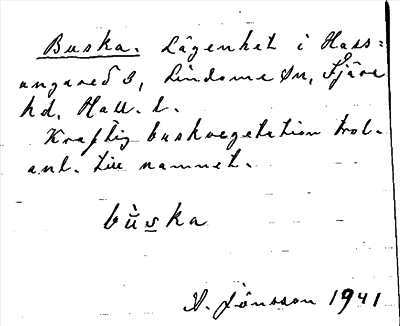 Buska. Lägenhet i Hass-
ungared 3, Lindome sn, Fjäre
hd, Hall. l.
Kraftig buskvegetation trol.
anl. till namnet.
bùska
A. Jönsson 1941